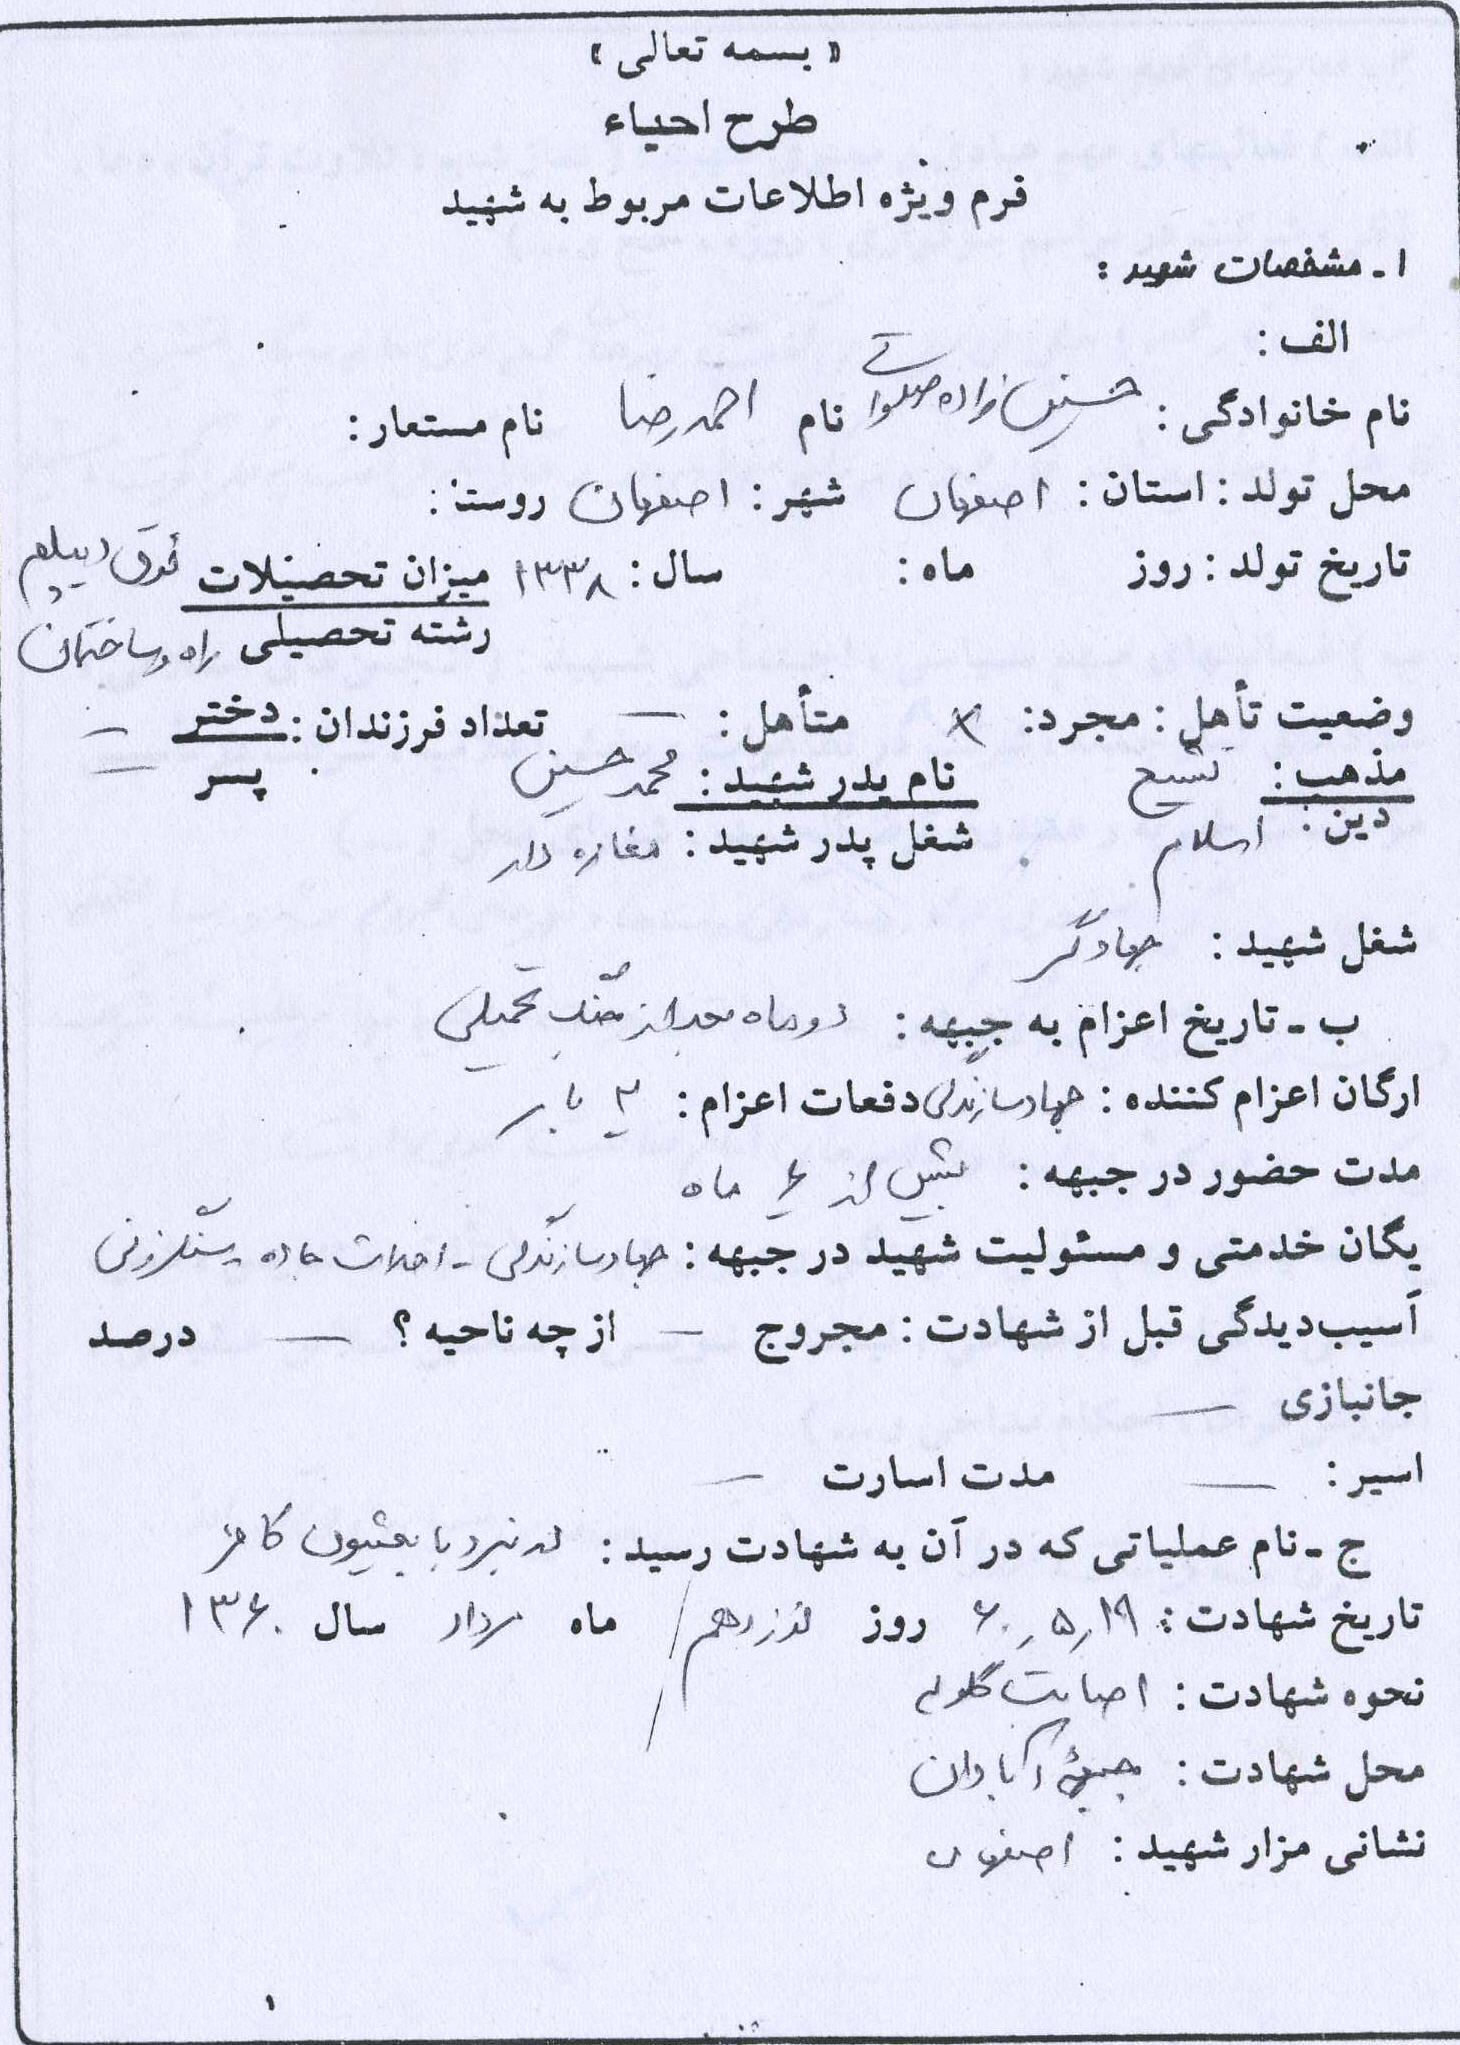 « بسمه تعالی »
طرح احیاء
فرم ویژه اطلاعات مربوط به شهید
۱ - مشخصات شهید :
الف :
نام خانوادگی : حسین زاده نام احمدرضا نام مستعار :
محل تولد : استان : اصفهان شهر : اصفهان روستا :
تاریخ تولد : روز ماه : سال : ۱۳۳۸ میزان تحصیلات فوق دیپلم
رشته تحصیلی راه و ساختمان
وضعیت تأهل : مجرد : × متأهل : — تعداد فرزندان : دختر —
مذهب : تشیع نام پدر شهید : محمد حسین پسر —
دین : اسلام شغل پدر شهید : مغازه دار
شغل شهید : جهادگر
ب - تاریخ اعزام به جبهه : دو ماه بعد از جنگ تحمیلی
ارگان اعزام کننده : جهاد سازندگی دفعات اعزام : ۲ بار
مدت حضور در جبهه : بیش از ۶ ماه
یگان خدمتی و مسئولیت شهید در جبهه : جهاد سازندگی - احداث جاده
آسیب‌دیدگی قبل از شهادت : مجروح — از چه ناحیه ؟ — درصد
جانبازی —
اسیر : — مدت اسارت —
ج - نام عملیاتی که در آن به شهادت رسید : در نبرد با بعثیون کافر
تاریخ شهادت : ۶۰٫۵٫۱۹ روز نوزدهم / ماه مرداد سال ۱۳۶۰
نحوه شهادت : اصابت گلوله
محل شهادت : جبهۀ آبادان
نشانی مزار شهید : اصفهان
۱